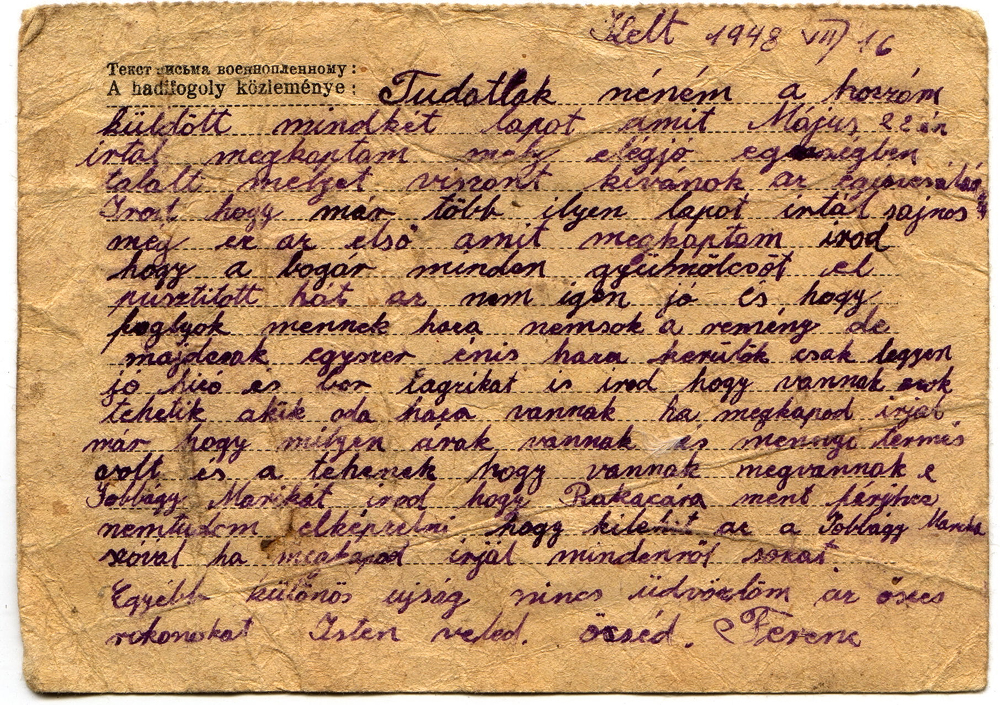 Kelt 1948 VII 16
Текст письма военнопленному:
A hadifogoly közleménye: Tudatlak néném a hozzám
küldött mindkét lapot amit Május 22 én
irtál megkaptam mely elégjó egésségben
talált melyet viszont kivánok az
Irod hogy már több ilyen lapot irtál sajnos
még ez az első amit megkaptam irod
hogy a bogár minden gyümölcsöt el
pusztitott hát az nem igen jó és hogy
foglyok mennek haza nemsok a remény de
majdcsak egyszer énis haza kerülök csak legyen
jó és bor is irod hogy vannak azok
tehetik akik oda haza vannak ha megkapod irjál
már hogy milyen árak vannak és mennyi termés
volt és a tehenek hogy vannak megvannak e
Jobbágy Marikát irod hogy Rakacára ment férjhez
nemtudom elképzelni hogy az a Jobbágy Mariska
szoval ha megkapod irjál mindenről sokat.
Egyébb különös ujság nincs üdvözlöm az öszes
rokonokat Isten veled. öcséd. Ferenc